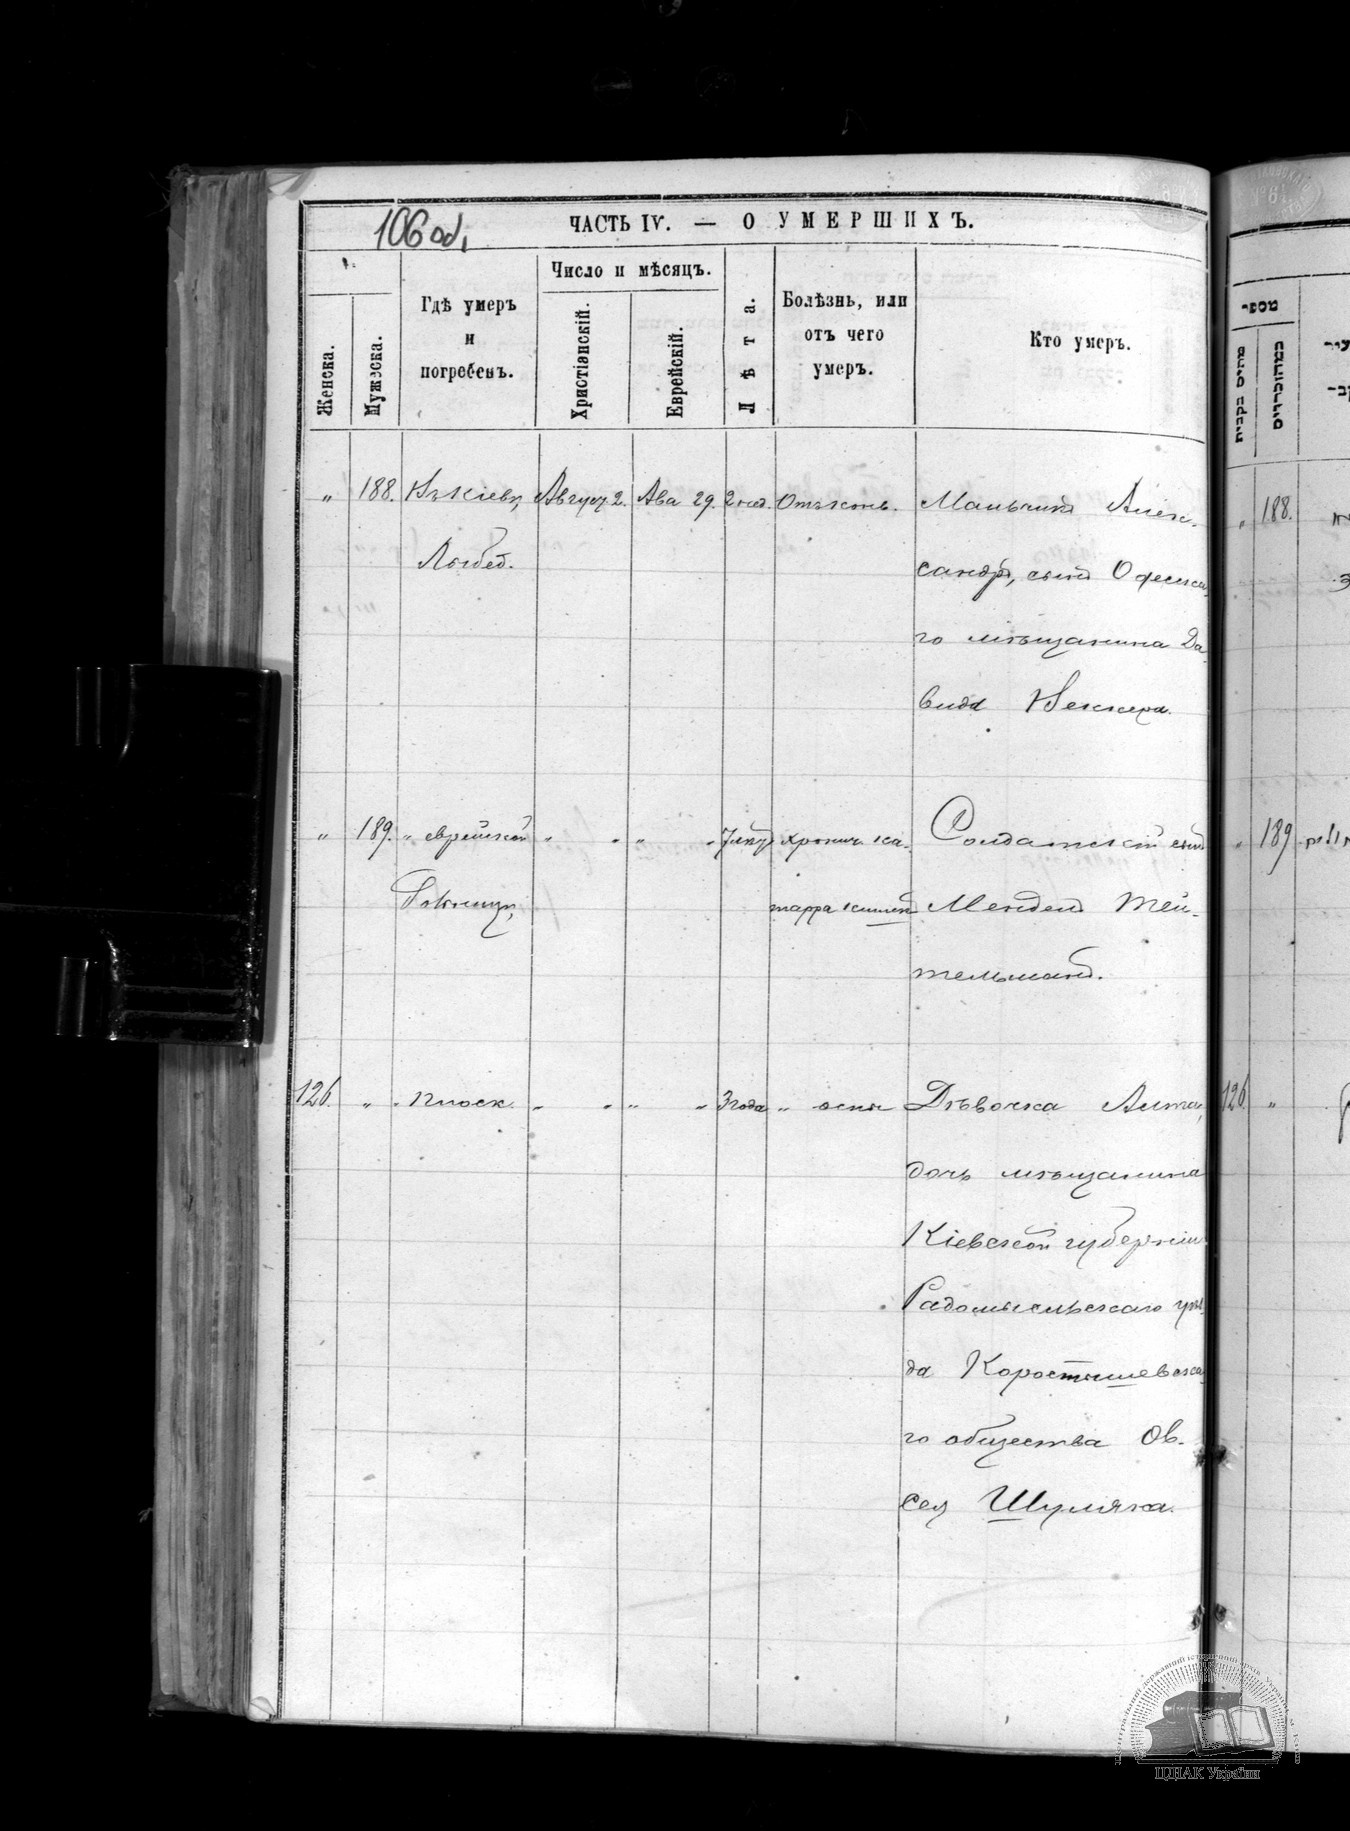 106 об.
ЧАСТЬ IV. — О УМЕРШИХЪ.
Женска.
Мужеска.
Гдѣ умеръ
и
погребенъ.
Число и мѣсяцъ.
Христіанскій.
Еврейскій.
Лѣта.
Болѣзнь, или
отъ чего
умеръ.
Кто умеръ.
„ 188. Въ Кіевѣ, Август 2. Ава 29. 2 нед. Мальчикъ Алек-
Лыбед. сандръ, сынъ Одесска-
го мѣщанина Да-
вида Веккера.
„ 189. „ еврейской „ „ „ „ хронич. ка- Солдатскій сынъ
больницѣ, тарра кишекъ Мендель Тей-
тельманъ.
126. „ „ Плоск. „ „ „ „ 3 года „ оспы Дѣвочка Алта,
дочь мѣщанина
Кіевской губерніи
Радомысльскаго уѣз-
да Коростышевска-
го общества Ов-
сея Шуляка.
מספר
188.
189
126.
ЦДІАК України